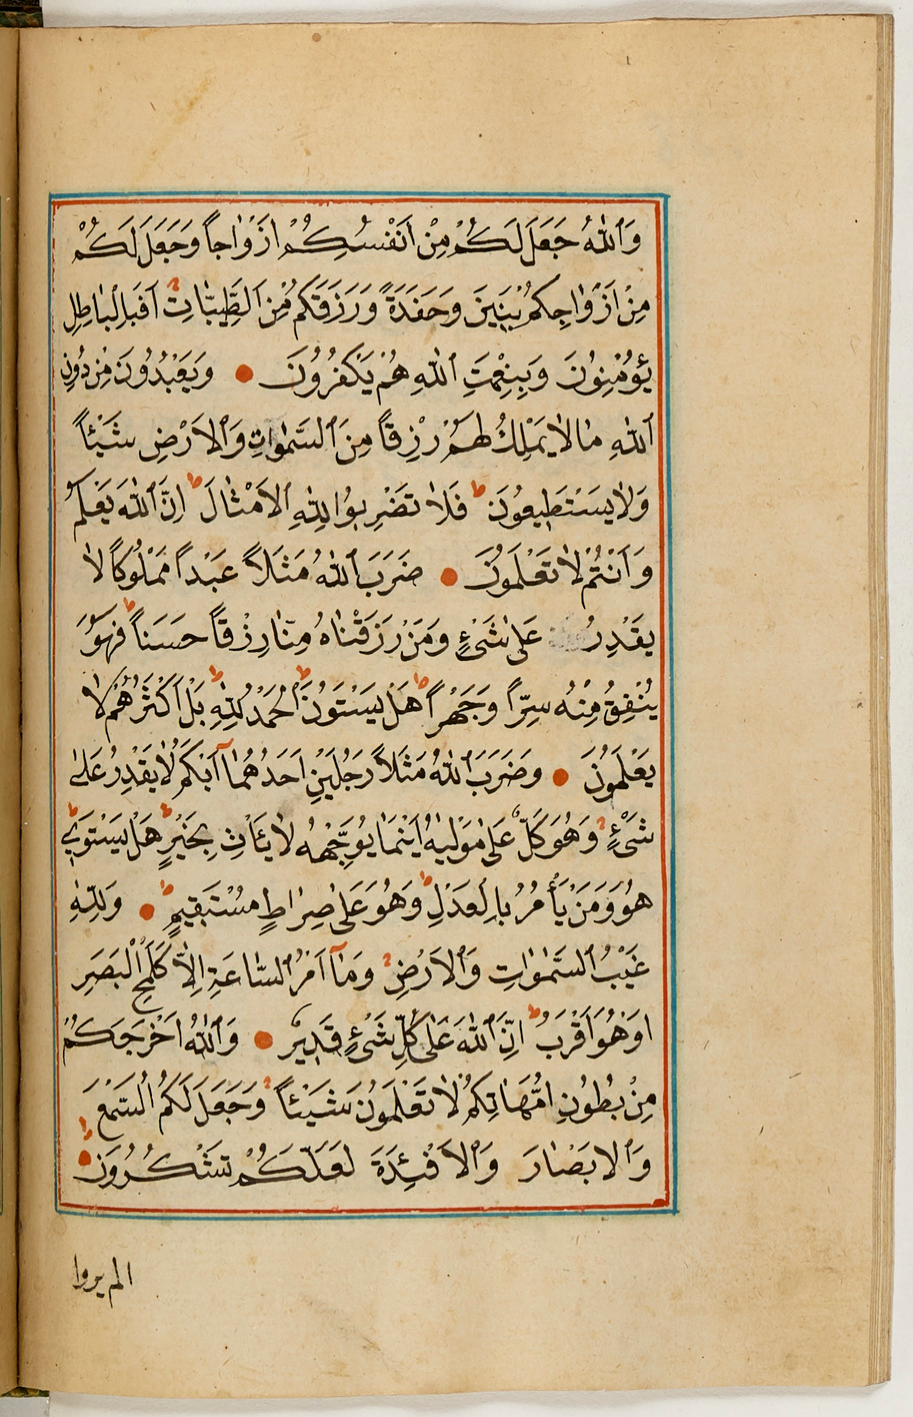 وَٱللّٰهُ جَعَلَ لَكُمْ مِنْ اَنْفُسِكُمْ اَزْوَاجاً وَجَعَلَ لَكُمْ
مِنْ اَزْوَاجِكُمْ بَنِينَ وَحَفَدَةً وَرَزَقَكُمْ مِنَ ٱلطَّيِّبَاتِ اَفَبِالْبَاطِلِ
يُؤْمِنُونَ وَبِنِعْمَتِ ٱللّٰهِ هُمْ يَكْفُرُونَ وَيَعْبُدُونَ مِنْ دُونِ
ٱللّٰهِ مَا لَا يَمْلِكُ لَهُمْ رِزْقاً مِنَ ٱلسَّمٰوَاتِ وَٱلْاَرْضِ شَيْئاً
وَلَا يَسْتَطِيعُونَ ط فَلَا تَضْرِبُوا لِلّٰهِ ٱلْاَمْثَالَ ط اِنَّ ٱللّٰهَ يَعْلَمُ
وَاَنْتُمْ لَا تَعْلَمُونَ ضَرَبَ ٱللّٰهُ مَثَلاً عَبْداً مَمْلُوكاً لَا
يَقْدِرُ عَلٰى شَىْءٍ وَمَنْ رَزَقْنَاهُ مِنَّا رِزْقاً حَسَناً ط فَهُوَ
يُنْفِقُ مِنْهُ سِرّاً وَجَهْراً ط هَلْ يَسْتَوُونَ ط اَلْحَمْدُ لِلّٰهِ ط بَلْ اَكْثَرُهُمْ لَا
يَعْلَمُونَ وَضَرَبَ ٱللّٰهُ مَثَلاً رَجُلَيْنِ اَحَدُهُمَا اَبْكَمُ لَا يَقْدِرُ عَلٰى
شَىْءٍ وَهُوَ كَلٌّ عَلٰى مَوْلٰيهُ اَيْنَمَا يُوَجِّهْهُ لَا يَأْتِ بِخَيْرٍ ط هَلْ يَسْتَوِى
هُوَ وَمَنْ يَأْمُرُ بِالْعَدْلِ ط وَهُوَ عَلٰى صِرَاطٍ مُسْتَقِيمٍ ط وَلِلّٰهِ
غَيْبُ ٱلسَّمٰوَاتِ وَٱلْاَرْضِ وَمَا اَمْرُ ٱلسَّاعَةِ اِلَّا كَلَمْحِ ٱلْبَصَرِ
اَوْ هُوَ اَقْرَبُ ط اِنَّ ٱللّٰهَ عَلٰى كُلِّ شَىْءٍ قَدِيرٌ وَٱللّٰهُ اَخْرَجَكُمْ
مِنْ بُطُونِ اُمَّهَاتِكُمْ لَا تَعْلَمُونَ شَيْئاً وَجَعَلَ لَكُمُ ٱلسَّمْعَ
وَٱلْاَبْصَارَ وَٱلْاَفْئِدَةَ لَعَلَّكُمْ تَشْكُرُونَ
الم يروا